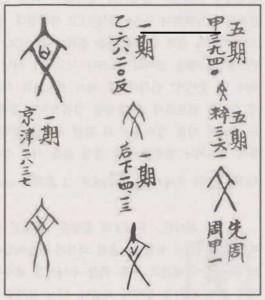 五期
甲三九四〇
五期
粹三六一
先周
周甲一
一期
乙六八二〇反
一期
后下一四.一三
一期
京津二八三七